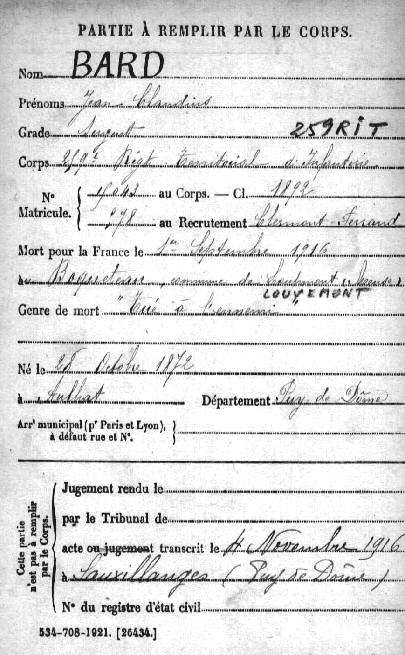 PARTIE À REMPLIR PAR LE CORPS.
Nom BARD
Prénoms Jean Claudius
Grade Sergent 259 RIT
Corps 259e Régt Territorial d'Infanterie
N° Matricule. { au Corps. — Cl. 1892
au Recrutement Clermont-Ferrand
Mort pour la France le 1er Septembre 1916
commune de Louvemont (Meuse)
LOUVEMONT
Genre de mort "Tué à l'ennemi"
Né le Octobre 1872
à Département Puy de Dôme
Arrt municipal (pr Paris et Lyon), à défaut rue et N°. }
Cette partie n'est pas à remplir par le Corps.
Jugement rendu le
par le Tribunal de
acte ou jugement transcrit le 4 Novembre 1916
à Sauxillanges (Puy de Dôme)
N° du registre d'état civil
534-708-1921. [26434.]